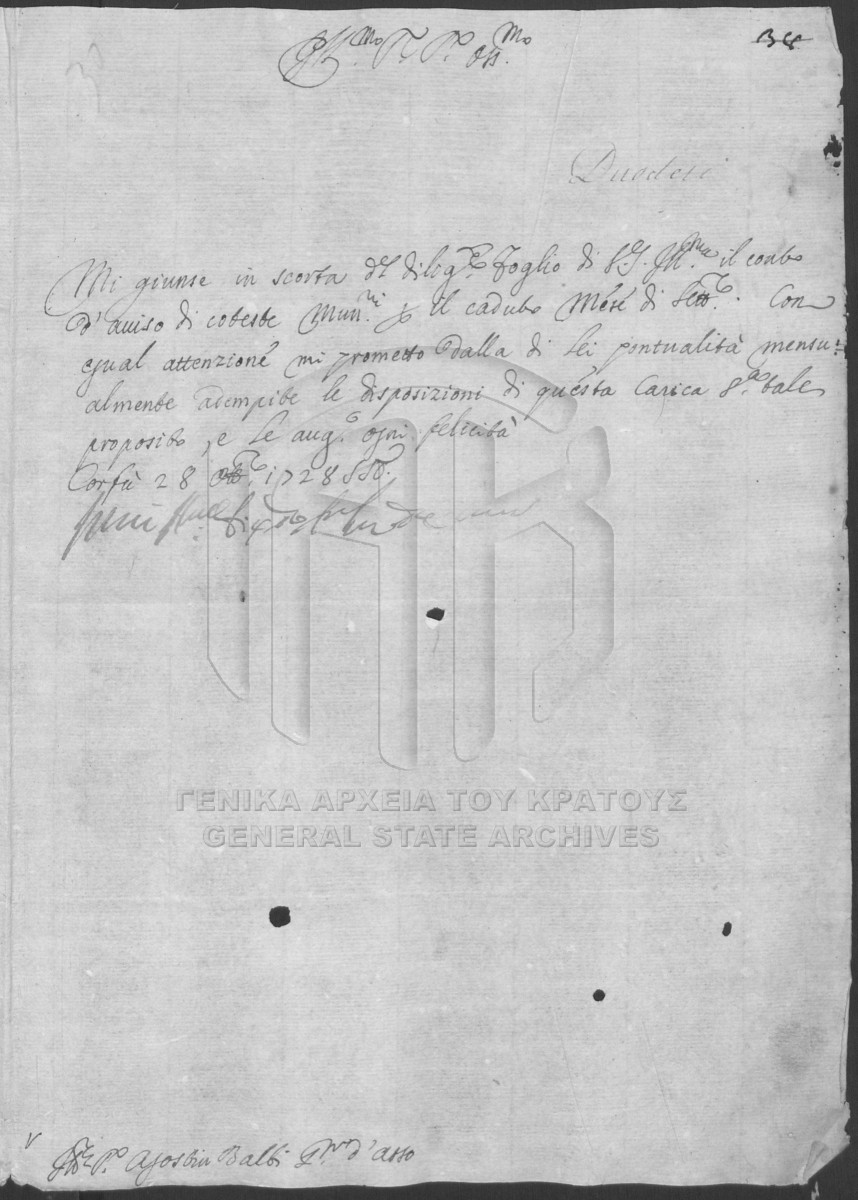 Ill.mo S.r P.ron Oss.mo
38
Duodeci
Mi giunse in scorta del dilig.te foglio di S.S. Ill.ma il conto
d'auiso di coteste Mun.ni p il caduto Mese di Sett.e. Con
egual attenzione mi prometto dalla di lei pontualità mensu:
almente adempite le disposizioni di questa Carica s.a tale
proposito, e le aug.o ogni felicità
Corfù 28 Ott.e 1728 S.N.
ΓΕΝΙΚΑ ΑΡΧΕΙΑ ΤΟΥ ΚΡΑΤΟΥΣ
GENERAL STATE ARCHIVES
Agostin Balbi d'Asso